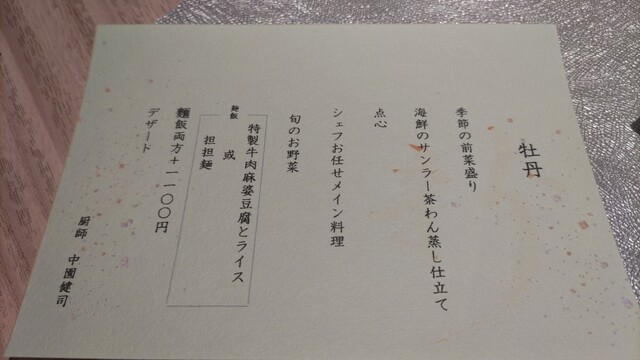 牡丹
季節の前菜盛り
海鮮のサンラー茶わん蒸し仕立て
点心
シェフお任せメイン料理
旬のお野菜
麺飯
特製牛肉麻婆豆腐とライス
或
担担麺
麺飯両方+一一〇〇円
デザート
厨師 中園健司